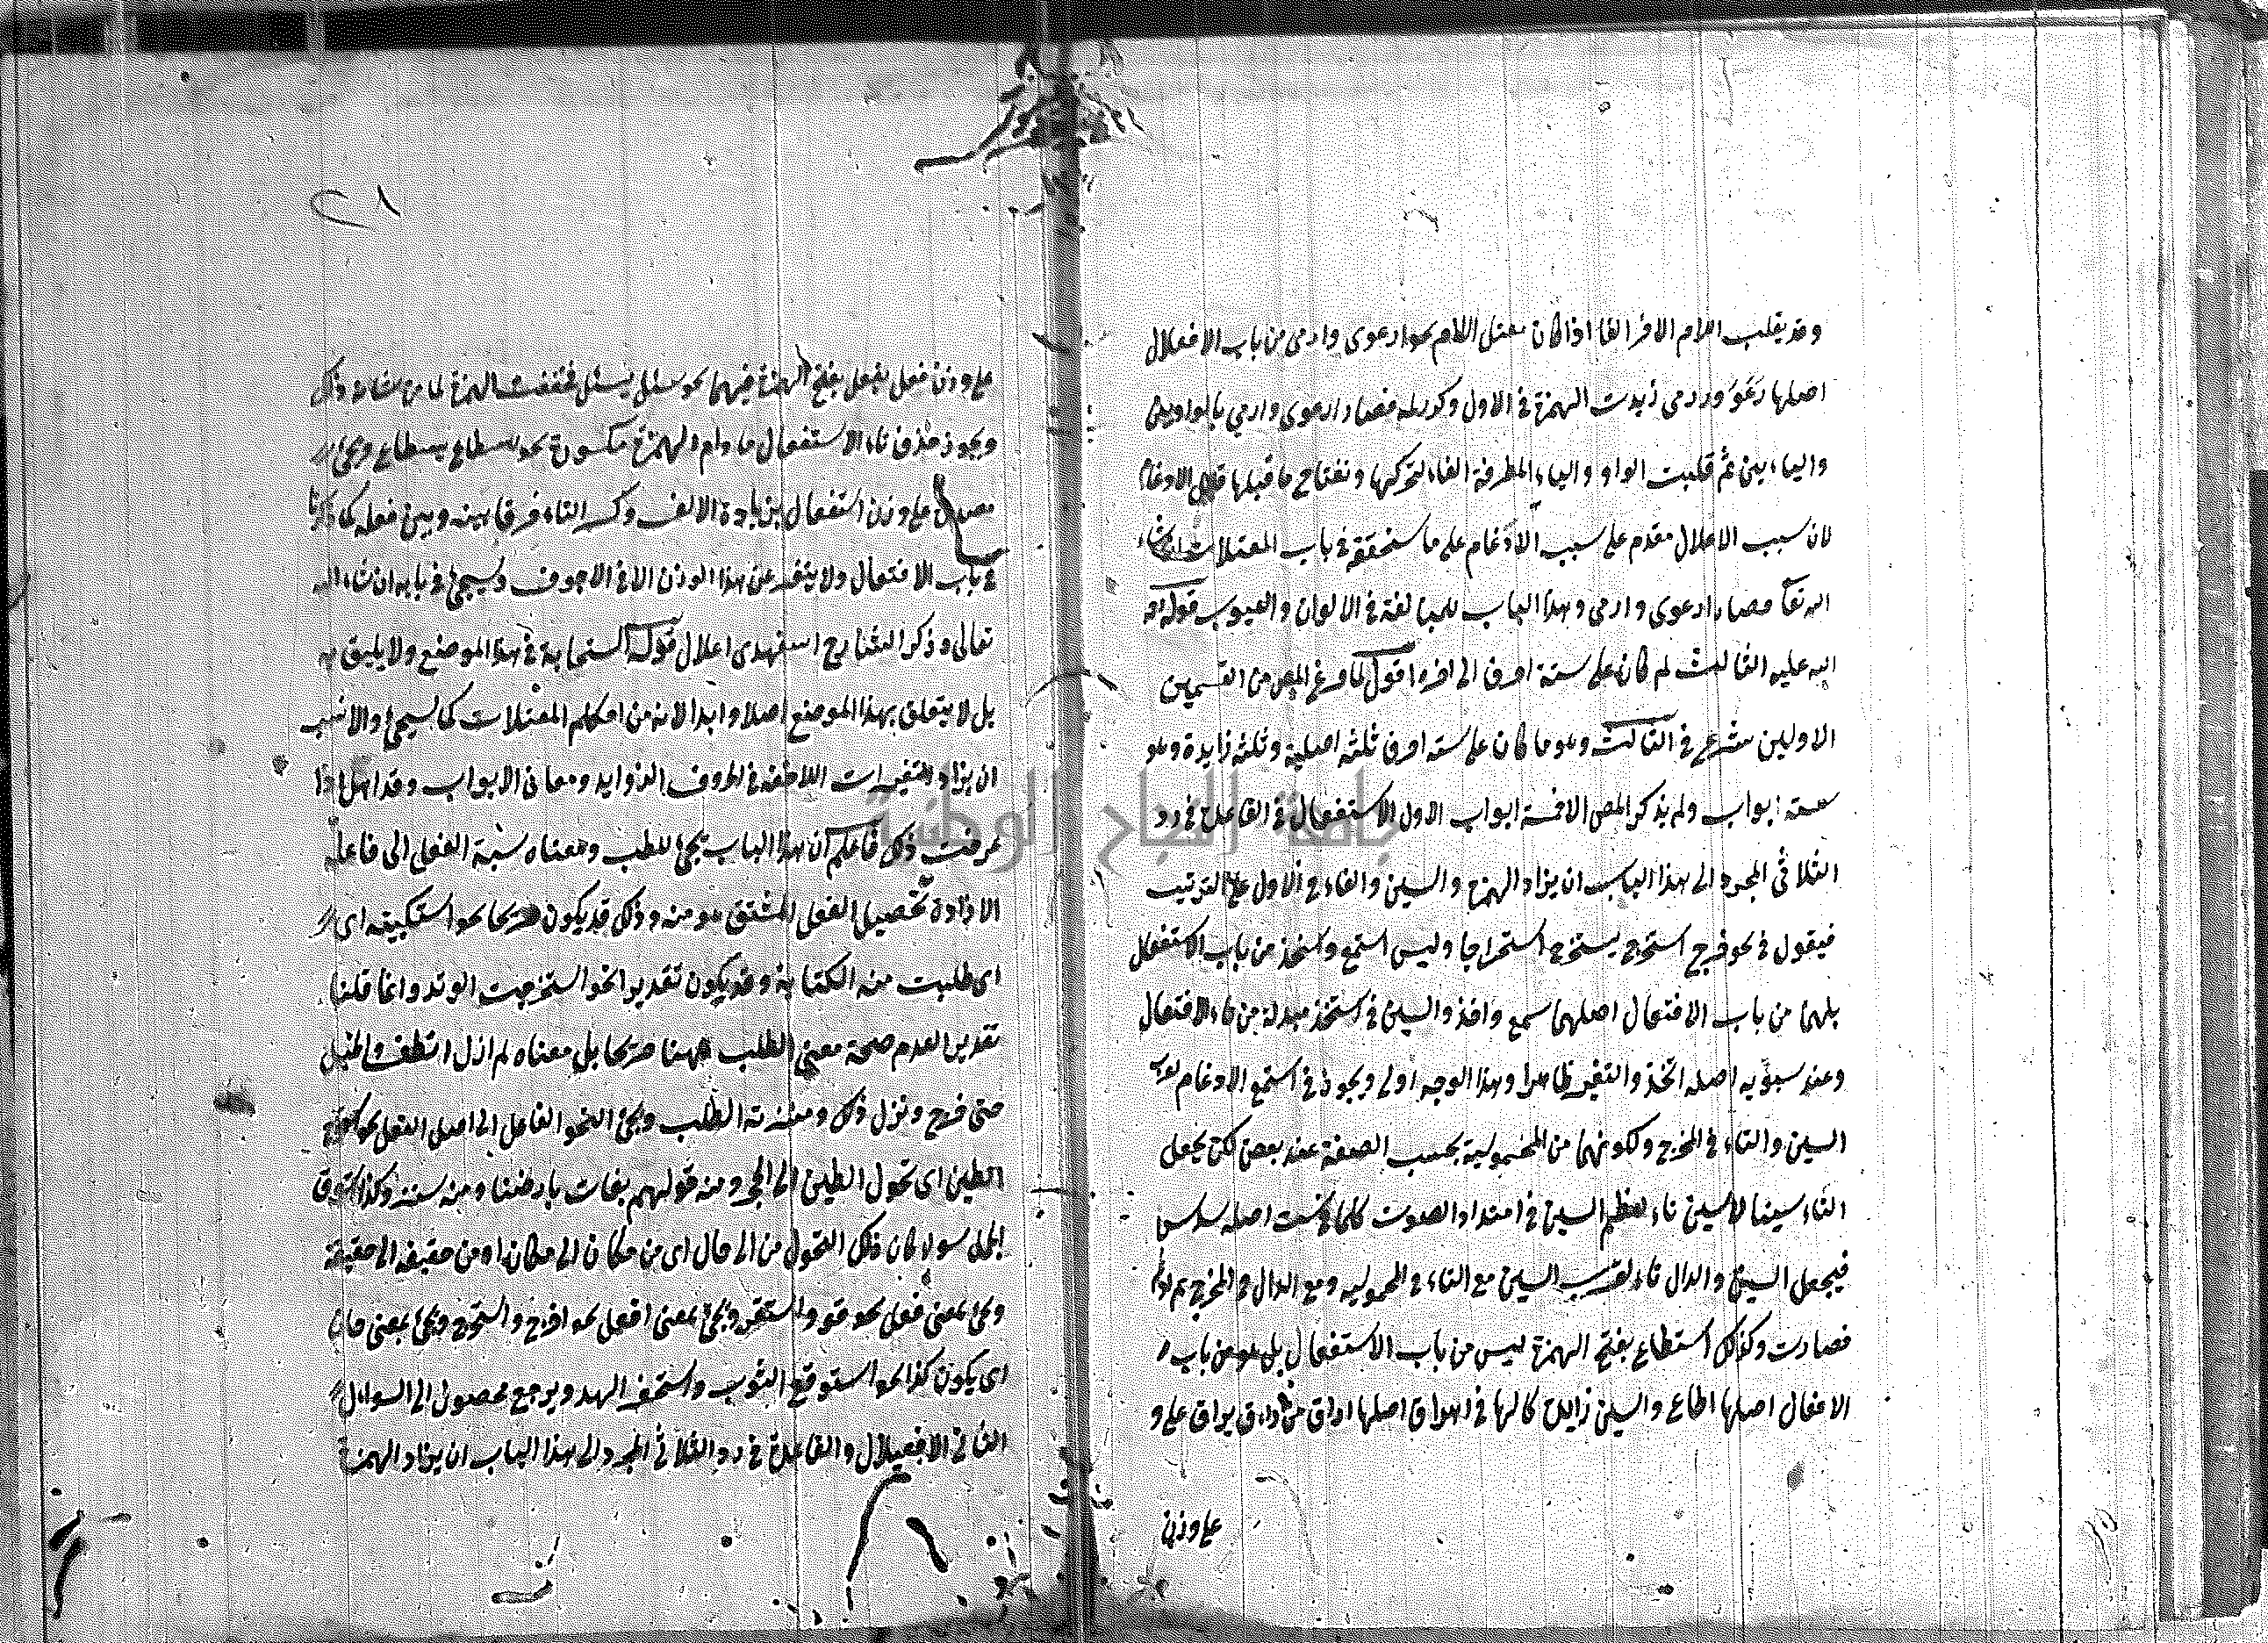 وقد يقلب اللام الاخر الفا اذا كان معتل اللام نحو ارعوى وارمى من باب الافعلال
اصلها رعو ورمى زيدت الهمزة فى الاول وكرر لامه فصار ارعوى وارمي بالواوين
واليايين ثم قلبت الواو والياء المطرفة الفا لتحركها ونفتاح ما قبلها قبل الادغام
لان سبب الاعلال مقدم على سبب الادغام على ما سنحققه فى باب المعتلات انشاء
الله تعا فصار ارعوى وارمى وهذا الباب للمبالغة فى الالوان والعيوب قوله رحمة
الله عليه الثالث لم كان على ستة احرف الى اخره اقول لما فرغ المص من القسمين
الاولين شرع فى الثالث وهو ما كان على سته احرف ثلثة اصلية وثلثة زايدة وهو
سته ابواب ولم يذكر المص الا خمسة ابواب الاول الاستفعال فى القاعدة فى رد
الثلاثى المجرد الى هذا الباب ان يزاد الهمزة والسين والتاء فى الاول على الترتيب
فيقول فى نحو خرج استخرج يستخرج استخراجا وليس استمع واستخذ من باب الاستفعال
بلهما من باب الافتعال اصلهما سمع واخذ والسين فى استخذ مبدلة من تاء الافتعال
وعند سيبويه اصله اتخذ والتغير ظاهرا وهذا الوجه اولى ويجوز فى استمع الادغام لقرب
السين والتاء فى المخرج ولكونهما من المهموسية بحسب الصفة عند بعض لكن يجعل
التاء سينا لا السين تاء لعظم السين فى امتداد الصوت كما فى ست اصله سدس
فيجعل السين والدال تاء لقرب السين مع التاء فى المهموسيه ومع الدال فى المخرج ثم ادغم
فصارت وكذلك استطاع بفتح الهمزة ليس من باب الاستفعال بل هو من باب
الافعال اصلها اطاع والسين زايدة كالها فى اهراق اصلها اراق من اراق يراق على و
على وزن
٢١
على وزن فعل يفعل بفتح الهمزة فيهما نحو سئل يسئل فخففت الهمزة لما من شانه ذلك
ويجوز حذف تاء الاستفعال ما دام الهمزة مكسورة نحو اسطاع يسطاع ويجئ
مصدره على وزن استفعال بزيادة الالف وكسر التاء فرقا بينه وبين فعله كما ذكرنا
فى باب الافتعال ولا يتغير عن هذا الوزن الا فى الاجوف وسيجئ فى بابه ان شاء الله
تعالى وذكر الشارح استهدى اعلال قوله استحابة فى هذا الموضع ولا يليق به
بل لا يتعلق بهذا الموضع اصلا وابدا لانه من احكام المعتلات كما سيجئ والانسب
ان يزاد التغيرات اللاحقه فى الحروف الزوايد ومعانى الابواب وقد اهمل اذا
عرفت ذلك فاعلم ان هذا الباب يجئ للطلب ومعناه نسبة الفعل الى فاعله
الارادة تحصيل الفعل المشتق هو منه وذلك قد يكون صريحا نحو استكتبته اى
اى طلبت منه الكتابة وقد يكون تقديرا نحو استخرجت الوتد وانما قلنا
تقديرا لعدم صحة معنى الطلب ههنا صريحا بل معناه لم ازل اتلطف واتخيل
حتى خرج ونزل ذلك منزلة الطلب ويجئ لتحول الفاعل الى اصل الفعل نحو استحجر
الطين اى تحول الطين الى الحجر ومنه قولهم بغاث بارضنا ومنه ستنسر وكذا استوق
الجمل سواء كان ذلك التحول من الى حال اى من مكان الى مكان او من حقيقة الى حقيقة
ويجئ بمعنى فعل نحو قر واستقر ويجئ بمعنى افعل نحو اخرج واستخرج ويجئ بمعنى حان
اى يكون كذا نحو استرقع الثوب واستحفر النهر ويرجع محصول الى السوال
الثانى الافعيلال والقاعدة فى رد الثلاثى المجرد الى هذا الباب ان يزاد الهمزة
جامعة النجاح الوطنية